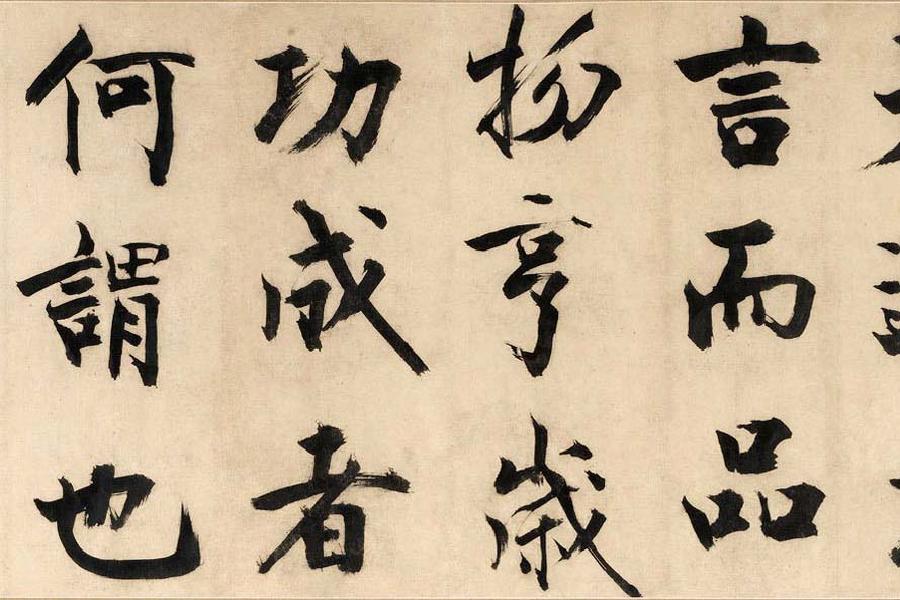 言而品
物亨歲
功成者
何謂也